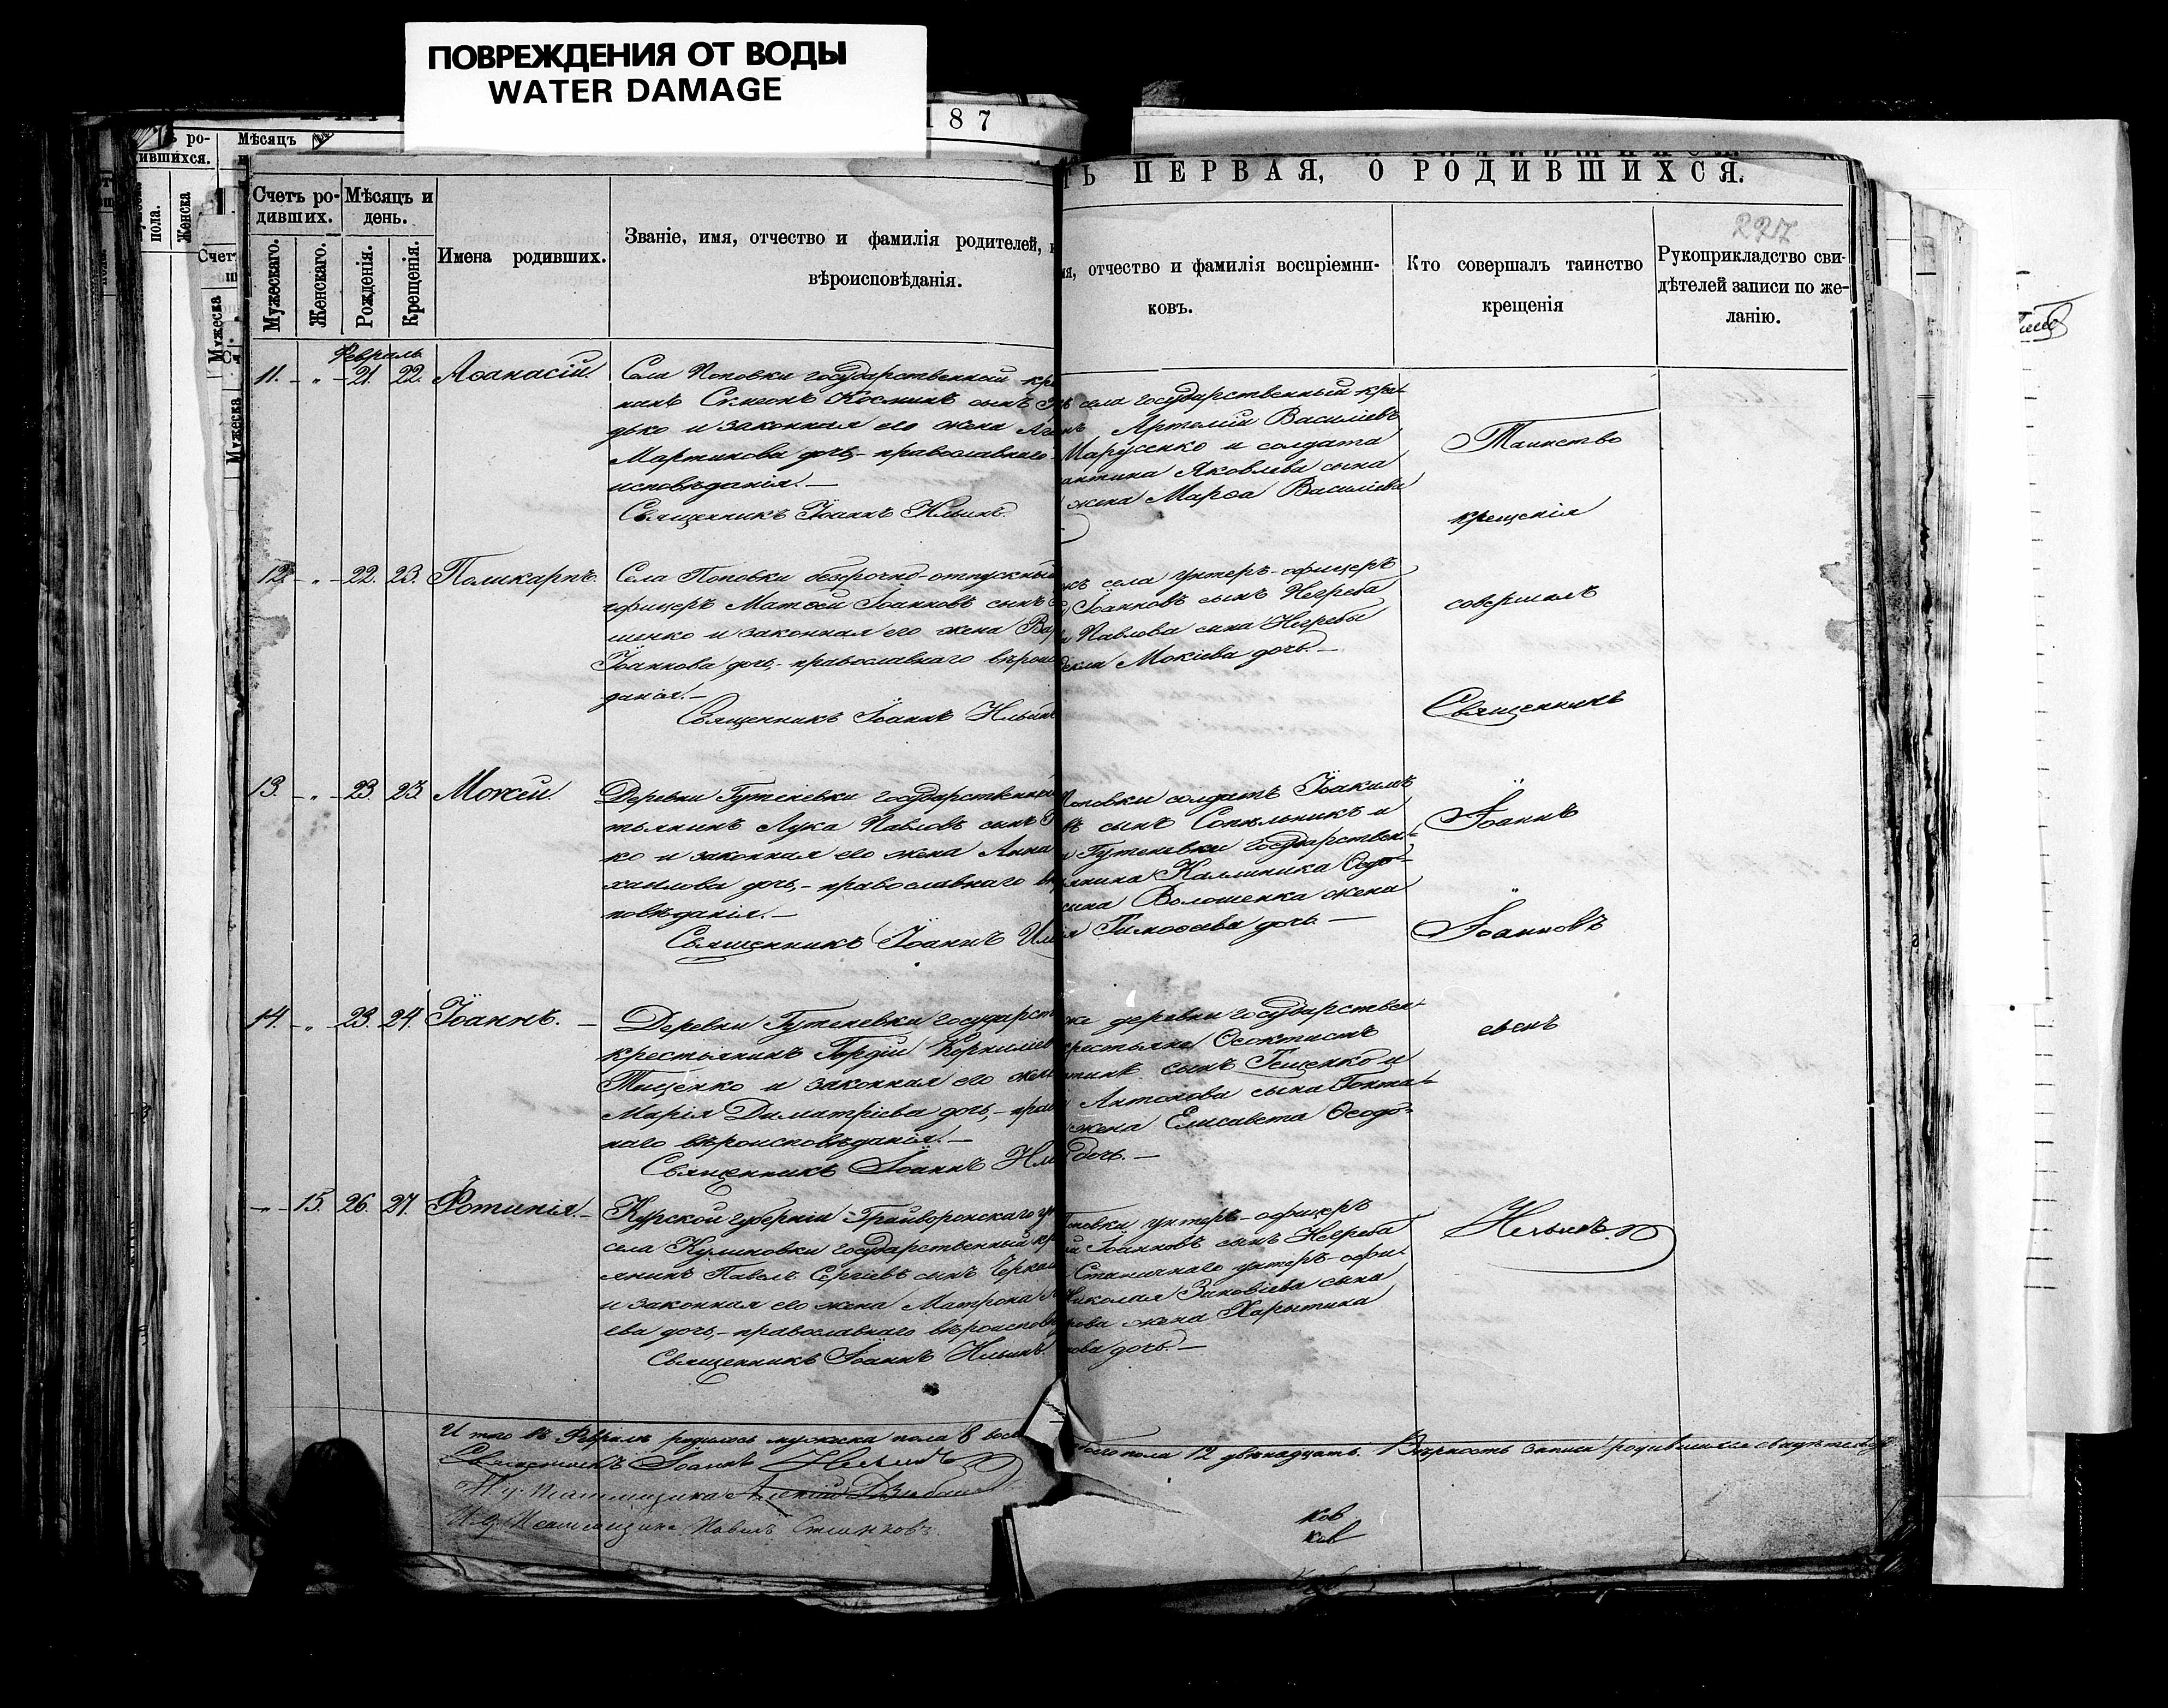 ПОВРЕЖДЕНИЯ ОТ ВОДЫ
WATER DAMAGE
187
ТЬ ПЕРВАЯ, О РОДИВШИХСЯ.
227
Счетъ ро-
дившихъ.
Мужескаго.
Женскаго.
Мѣсяцъ и
день.
Рожденія.
Крещенія.
Имена родившихъ.
Званіе, имя, отчество и фамилія родителей,
вѣроисповѣданія.
отчество и фамилія воспріемни-
ковъ.
Кто совершалъ таинство
крещенія
Рукоприкладство сви-
дѣтелей записи по же-
ланію.
Февраль
11. - " - 21. 22. Аѳанасій.
Села Поповки государственный кре
нинъ Симеонъ Косминъ сынъ
дько и законная его жена
Мартинова дочь,- православнаго
исповѣданія.-
Священникъ Іоаннъ Ильинъ.
села государственный кре-
Артемій Василіевъ
Марусенко и солдата
Яковлева сына
жена Марѳа Василіева
12. - " - 22. 23. Поликарпъ.
Села Поповки безсрочно-отпускный
офицеръ Матѳей Іоанновъ сынъ
шенко и законная его жена Вар
Іоаннова дочь,- православнаго вѣроис
данія.-
Священникъ Іоаннъ Ильинъ
села унтеръ-офицеръ
Іоанновъ сынъ Негреба
Павлова сына Негребы
Мокіева дочь.-
13. - " - 23. 23. Моѵсей.
Деревни Гутеневки государственный
тьянинъ Лука Павловъ сынъ
ко и законная его жена Анна
хаилова дочь,- православнаго
повѣданія.-
Священникъ Іоаннъ Иль
Поповки солдатъ Іоакимъ
въ сынъ Сопѣльникъ и
Гутеневки государствен-
янина Каллиника Ѳедо-
сына Волошенка жена
Тимоѳеева дочь.-
14. - " - 23. 24. Іоаннъ. -
Деревни Гутеневки государст
крестьянинъ Гордій Корниліев
Тищенко и законная его жена
Марія Димитріева дочь,- прав
наго вѣроисповѣданія.-
Священникъ Іоаннъ Иль
же деревни государствен-
Ѳеоктистъ
сынъ Гещенко и
Антонова сына
жена Елисавета Ѳеодо-
дочь.-
- " - 15. 26. 27. Фотинія.-
Курской губерніи Грайворонскаго у
села Куликовки государственный кр
янинъ Павелъ Сергіевъ сынъ Черка
и законная его жена Матрона
ева дочь,- православнаго вѣроисповѣ
Священникъ Іоаннъ Ильинъ.
Поповки унтеръ-офицеръ
Іоанновъ сынъ Негреба
Станичнаго унтеръ-офи-
Николая Зиновіева сына
жена Харытина
дочь.-
Таинство
крещенія
совершалъ
Священникъ
Іоаннъ
Іоанновъ
сынъ
Ильинъ.
И того въ Февралѣ родилось мужеска пола 8 вос
пола 12 двѣнадцать. Вѣрность записи родившихся свидѣтельст
Священникъ Іоаннъ Ильинъ
И. д. Псаломщика Павелъ